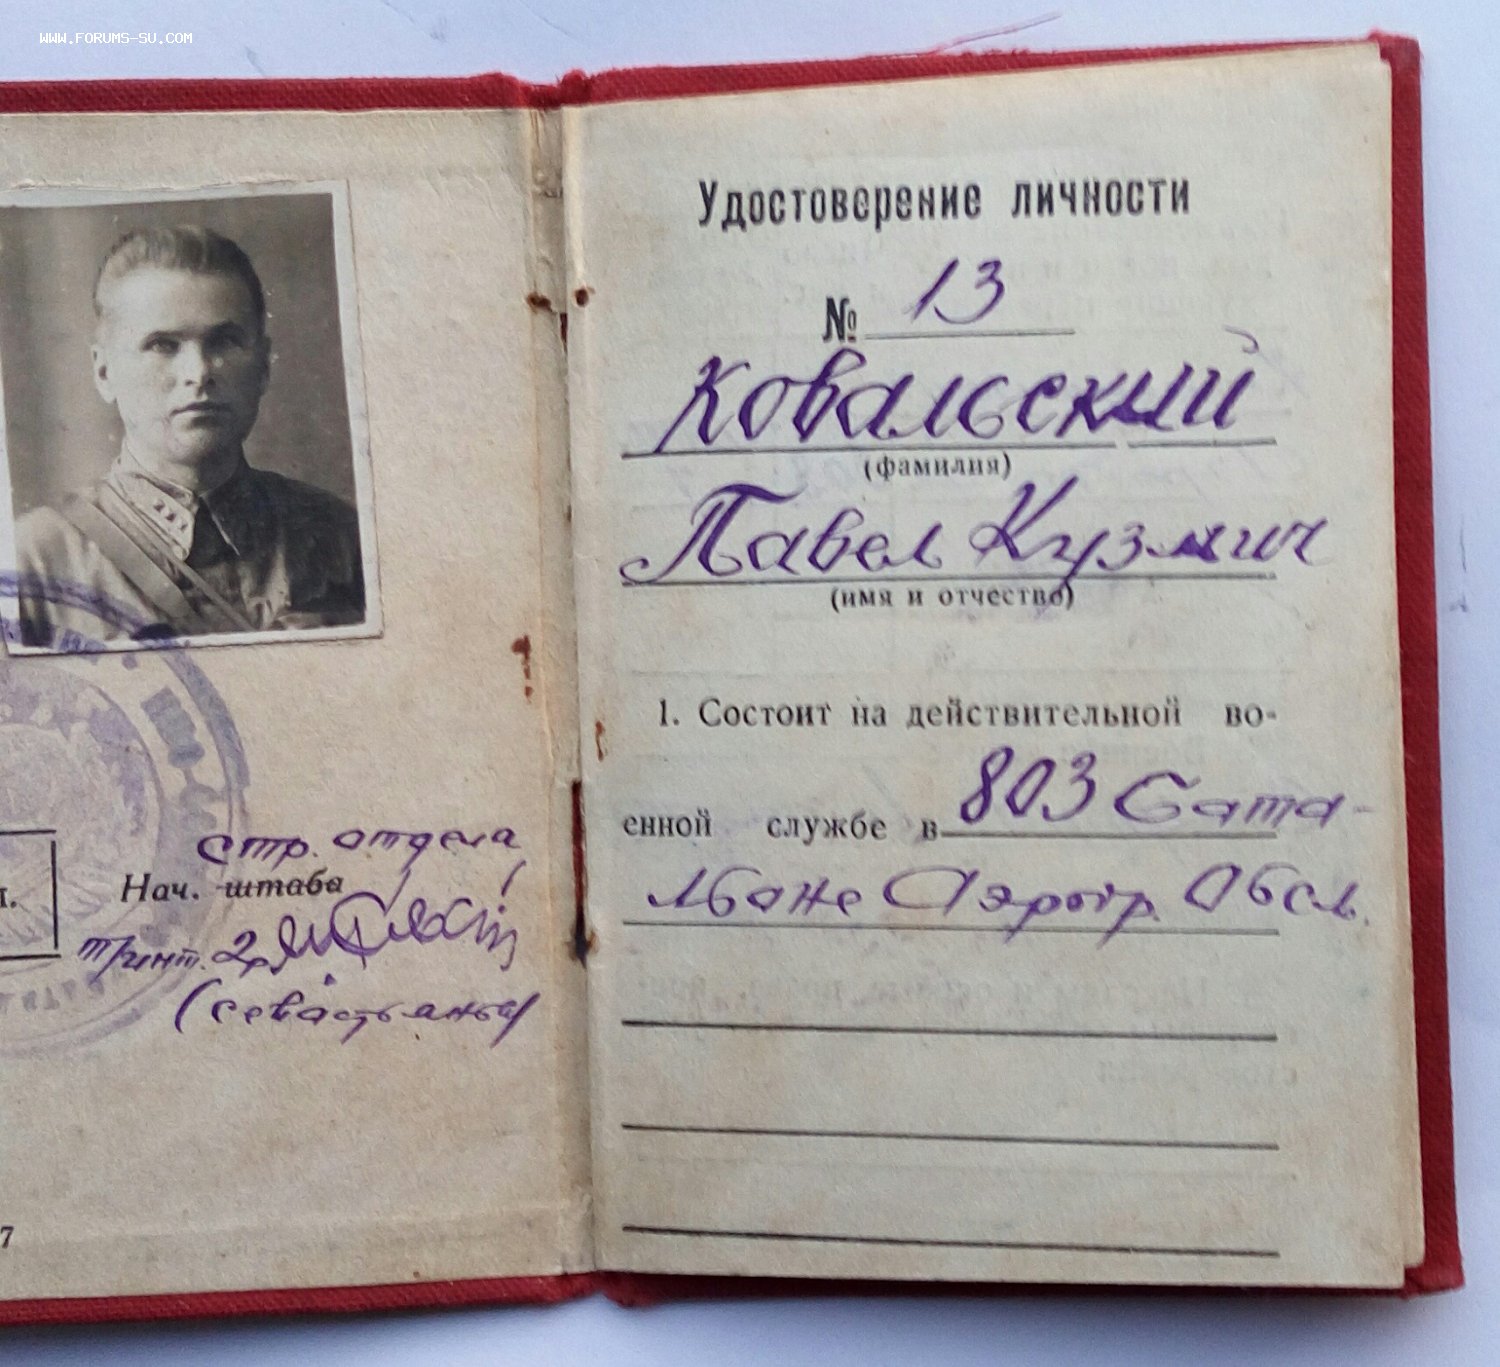 WWW.FORUMS-SU.COM
стр. отдела
Нач. штаба
(Севастьянов)
7
Удостоверение личности
№ 13
Ковальский
(фамилия)
Павел Кузмич
(имя и отчество)
1. Состоит на действительной во-
енной службе в 803 Бата-
льоне Аэродр. Обсл.